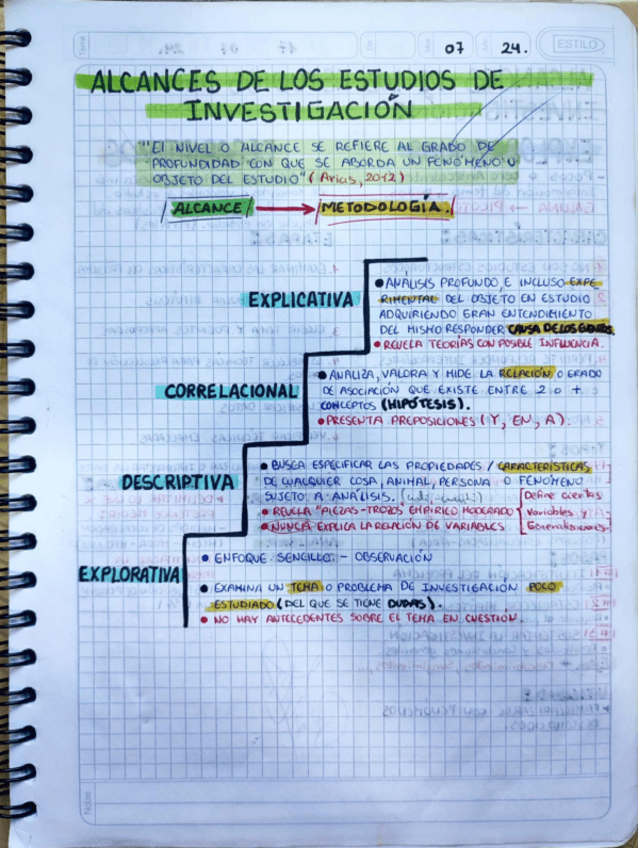 07 24. ESTILO
ALCANCES DE LOS ESTUDIOS DE
INVESTIGACIÓN
""El NIVEL O ALCANCE SE REFIERE AL GRADO DE
PROFUNDIDAD CON QUE SE ABORDA UN FENÓMENO U
OBJETO DEL ESTUDIO" (Arias, 2012)
ALCANCE → METODOLOGÍA.
EXPLICATIVA
• ANÁLISIS PROFUNDO, E INCLUSO EXPE
RIMENTAL DEL OBJETO EN ESTUDIO
ADQUIRIENDO GRAN ENTENDIMIENTO
DEL MISMO RESPONDER CAUSA DE LOS
• REVELA TEORÍAS CON POSIBLE INFLUENCIA.
CORRELACIONAL
• ANALIZA, VALORA Y MIDE LA RELACIÓN O GRADO
DE ASOCIACIÓN QUE EXISTE ENTRE 2 O +
CONCEPTOS (HIPÓTESIS).
• PRESENTA PREPOSICIONES (Y, EN, A).
DESCRIPTIVA
• BUSCA ESPECIFICAR LAS PROPIEDADES / CARACTERÍSTICAS
DE CUALQUIER COSA, ANIMAL, PERSONA O FENÓMENO
SUJETO A ANÁLISIS.
• REVELA "PIEZAS-TROZOS" EMPÍRICO MODERADO
• NUNCA EXPLICA LA RELACIÓN DE VARIABLES
Define ciertas
Variables y
Generalizaciones
EXPLORATIVA
• ENFOQUE SENCILLO - OBSERVACIÓN
• EXAMINA UN TEMA O PROBLEMA DE INVESTIGACIÓN POCO
ESTUDIADO (DEL QUE SE TIENE DUDAS).
• NO HAY ANTECEDENTES SOBRE EL TEMA EN CUESTIÓN.
Notas